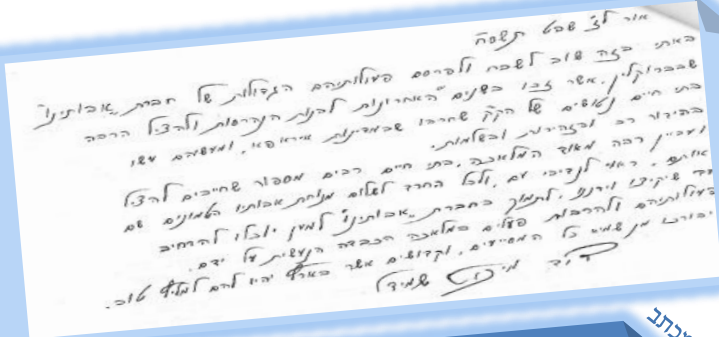 אור לצ' שבט תשסח
באתי בזה שוב לשבח ולפרסם פעולותיהם הגדולות של חברת "אבותינו"
שבברוקלין, אשר זכו בשנים האחרונות לבנות הנהרסות ולהציל הרבה
בתי חיים נטושים של הק"ק שחרבו שבמדינות אייראפא, ומעשיהם עשו
בהידור רב ובזהירות ובשלמות.
ועדיין רבה מאוד המלאכה, בתי חיים רבים מספור שחייבים להציל
אותם, ראוי לנדיבי עם, ולכל החרד לשלום מנוחת אבותיו הטמונים שם
עד שיקיצו וירננו, לתמוך בחברת "אבותינו" למען יוכלו להרחיב
פעולותיהם ולהרבות פעלים במלאכה הכבדה הנעשית על ידם.
יבורכו מן שמיא כל המסייעים, וקדושים אשר בארץ יהיו להם למליץ טוב.
דוד שמידל
מכתב